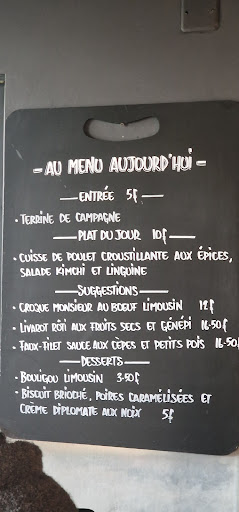 - AU MENU AUJOURD'HUI -
ENTRÉE 5€
• TERRINE DE CAMPAGNE
PLAT DU JOUR 10€
• CUISSE DE POULET CROUSTILLANTE AUX ÉPICES,
SALADE KIMCHI ET LINGUINE
SUGGESTIONS
• CROQUE MONSIEUR AU BOEUF LIMOUSIN 12€
• LIVAROT RÔTI AUX FRUITS SECS ET GÉNÉPI 16.50€
• FAUX-FILET SAUCE AUX CÈPES ET PETITS POIS 16.50€
DESSERTS
• BOULIGOU LIMOUSIN 3.50€
• BISCUIT BRIOCHÉ, POIRES CARAMÉLISÉES ET
CRÈME DIPLOMATE AUX NOIX 5€